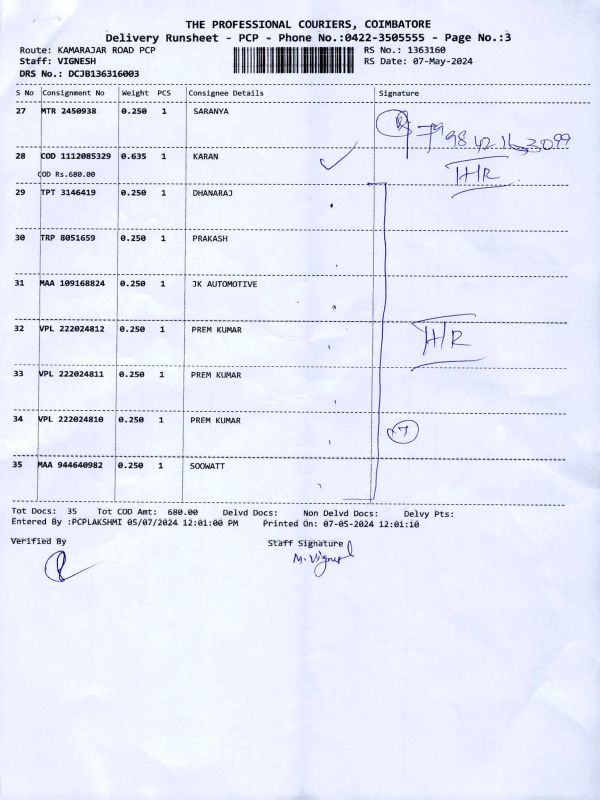 THE PROFESSIONAL COURIERS, COIMBATORE
Delivery Runsheet - PCP - Phone No.:0422-3505555 - Page No.:3
Route: KAMARAJAR ROAD PCP RS No.: 1363160
Staff: VIGNESH RS Date: 07-May-2024
DRS No.: DCJB136316003
S No Consignment No Weight PCS Consignee Details Signature
27 MTR 2450938 0.250 1 SARANYA
28 COD 1112085329 0.635 1 KARAN
COD Rs.680.00
H/R
29 TPT 3146419 0.250 1 DHANARAJ
30 TRP 8051659 0.250 1 PRAKASH
31 MAA 109168824 0.250 1 JK AUTOMOTIVE
32 VPL 222024812 0.250 1 PREM KUMAR H/R
33 VPL 222024811 0.250 1 PREM KUMAR
34 VPL 222024810 0.250 1 PREM KUMAR 7
35 MAA 944640982 0.250 1 SOOWATT
Tot Docs: 35 Tot COD Amt: 680.00 Delvd Docs: Non Delvd Docs: Delvy Pts:
Entered By :PCPLAKSHMI 05/07/2024 12:01:00 PM Printed On: 07-05-2024 12:01:10
Verified By Staff Signature
M. Vignesh